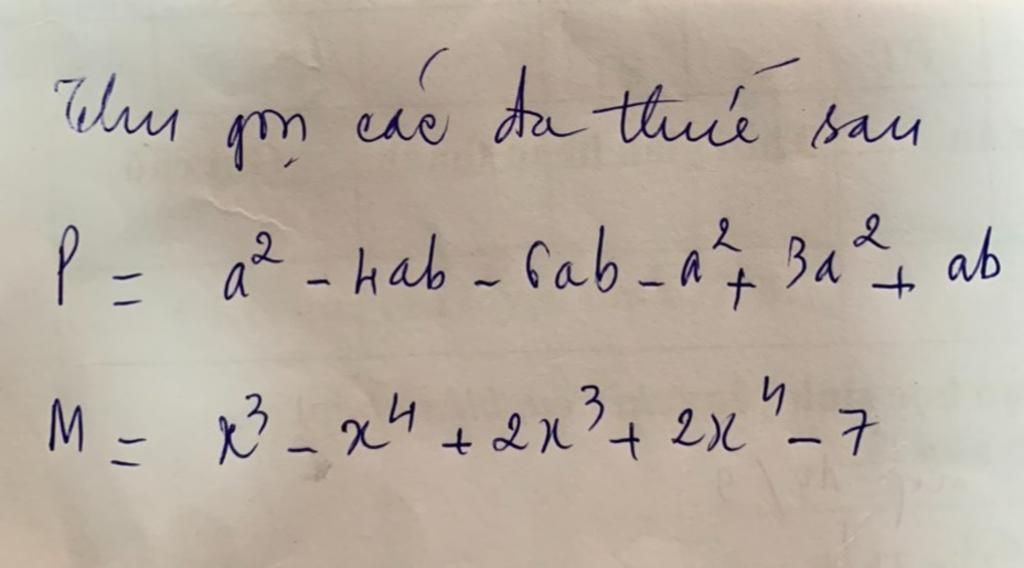 Thu gọn các đa thức sau
P = a² - 4ab - 6ab - a² + 3a² + ab
M = x³ - x⁴ + 2x³ + 2x⁴ - 7